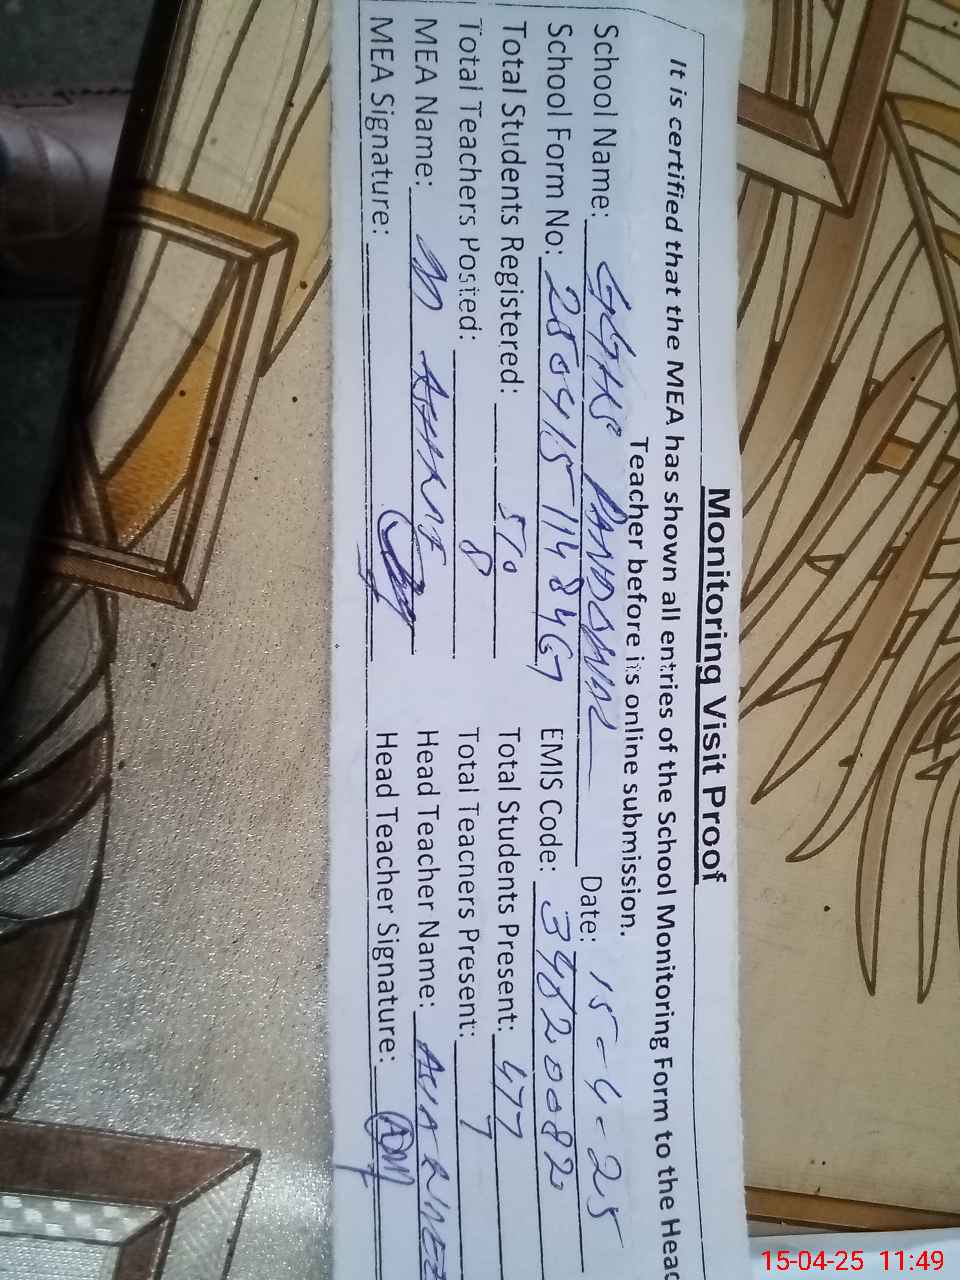 Monitoring Visit Proof
It is certified that the MEA has shown all entries of the School Monitoring Form to the Head
Teacher before its online submission.
School Name: GGHS PANDOWAL Date: 15-4-25
School Form No: EMIS Code: 34820082
Total Students Registered: 510 Total Students Present: 477
Total Teachers Posted: 8 Total Teachers Present: 7
MEA Name: M Head Teacher Name: ASIA
MEA Signature: Head Teacher Signature:
15-04-25 11:49